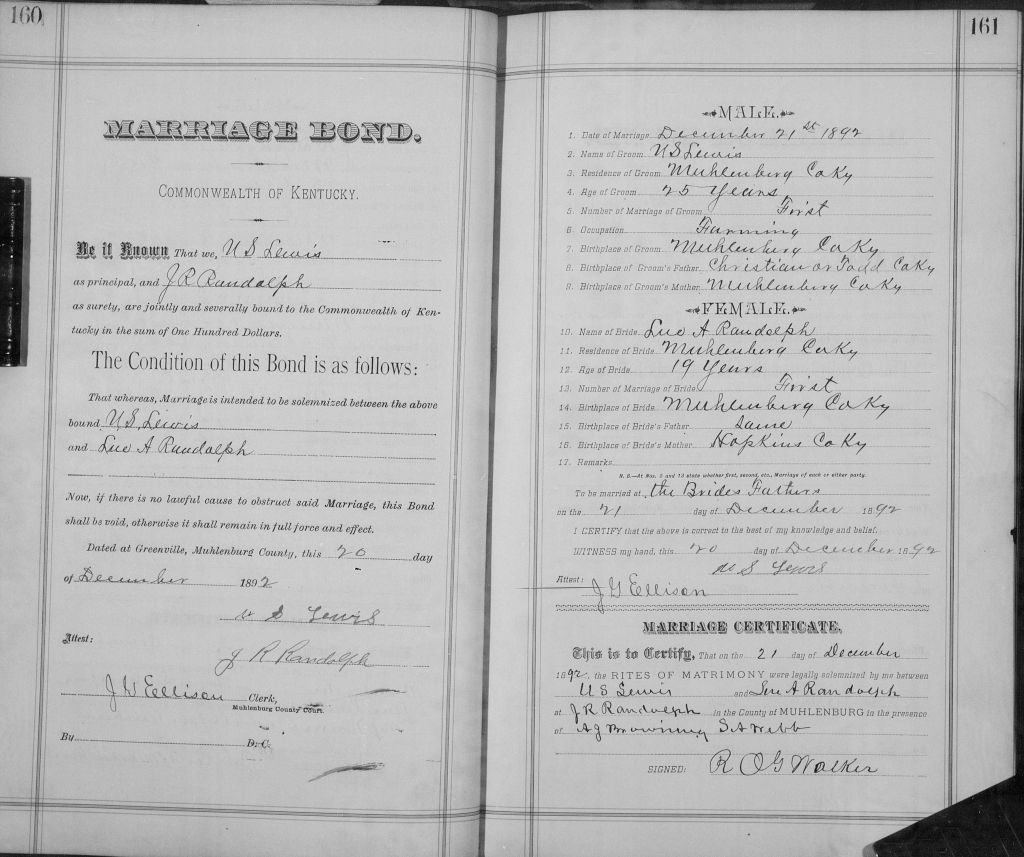 160
MARRIAGE BOND.
COMMONWEALTH OF KENTUCKY.
Be it Known That we, U S Lewis
as principal, and J R Randolph
as surety, are jointly and severally bound to the Commonwealth of Ken-
tucky in the sum of One Hundred Dollars.
The Condition of this Bond is as follows:
That whereas, Marriage is intended to be solemnized between the above
bound U.S. Lewis
and Lue A Randolph
Now, if there is no lawful cause to obstruct said Marriage, this Bond
shall be void, otherwise it shall remain in full force and effect.
Dated at Greenville, Muhlenburg County, this 20 day
of December 1892
U S Lewis
Attest:
J R Randolph
J W Ellison Clerk,
Muhlenburg County Court.
By D. C.
161
MALE.
1. Date of Marriage December 21st 1892
2. Name of Groom U S Lewis
3. Residence of Groom Muhlenberg Co Ky
4. Age of Groom 25 Years
5. Number of Marriage of Groom First
6. Occupation Farming
7. Birthplace of Groom Muhlenberg Co Ky
8. Birthplace of Groom's Father Christian or Todd Co Ky
9. Birthplace of Groom's Mother Muhlenberg Co Ky
FEMALE.
10. Name of Bride Lue A Randolph
11. Residence of Bride Muhlenberg Co Ky
12. Age of Bride 19 Years
13. Number of Marriage of Bride First
14. Birthplace of Bride Muhlenberg Co Ky
15. Birthplace of Bride's Father Same
16. Birthplace of Bride's Mother Hopkins Co Ky
17. Remarks
N. B.—At Nos. 5 and 13 state whether first, second, etc., Marriage of each or either party.
To be married at the Brides Fathers
on the 21 day of December 1892
I CERTIFY that the above is correct to the best of my knowledge and belief.
WITNESS my hand, this 20 day of December 1892
U S Lewis
Attest:
J G Ellison
MARRIAGE CERTIFICATE.
This is to Certify, That on the 21 day of December
1892, the RITES OF MATRIMONY were legally solemnized by me between
U S Lewis and Lue A Randolph
at J R Randolph in the County of MUHLENBURG in the presence
of A J Browning S A Webb
SIGNED: R O G Walker